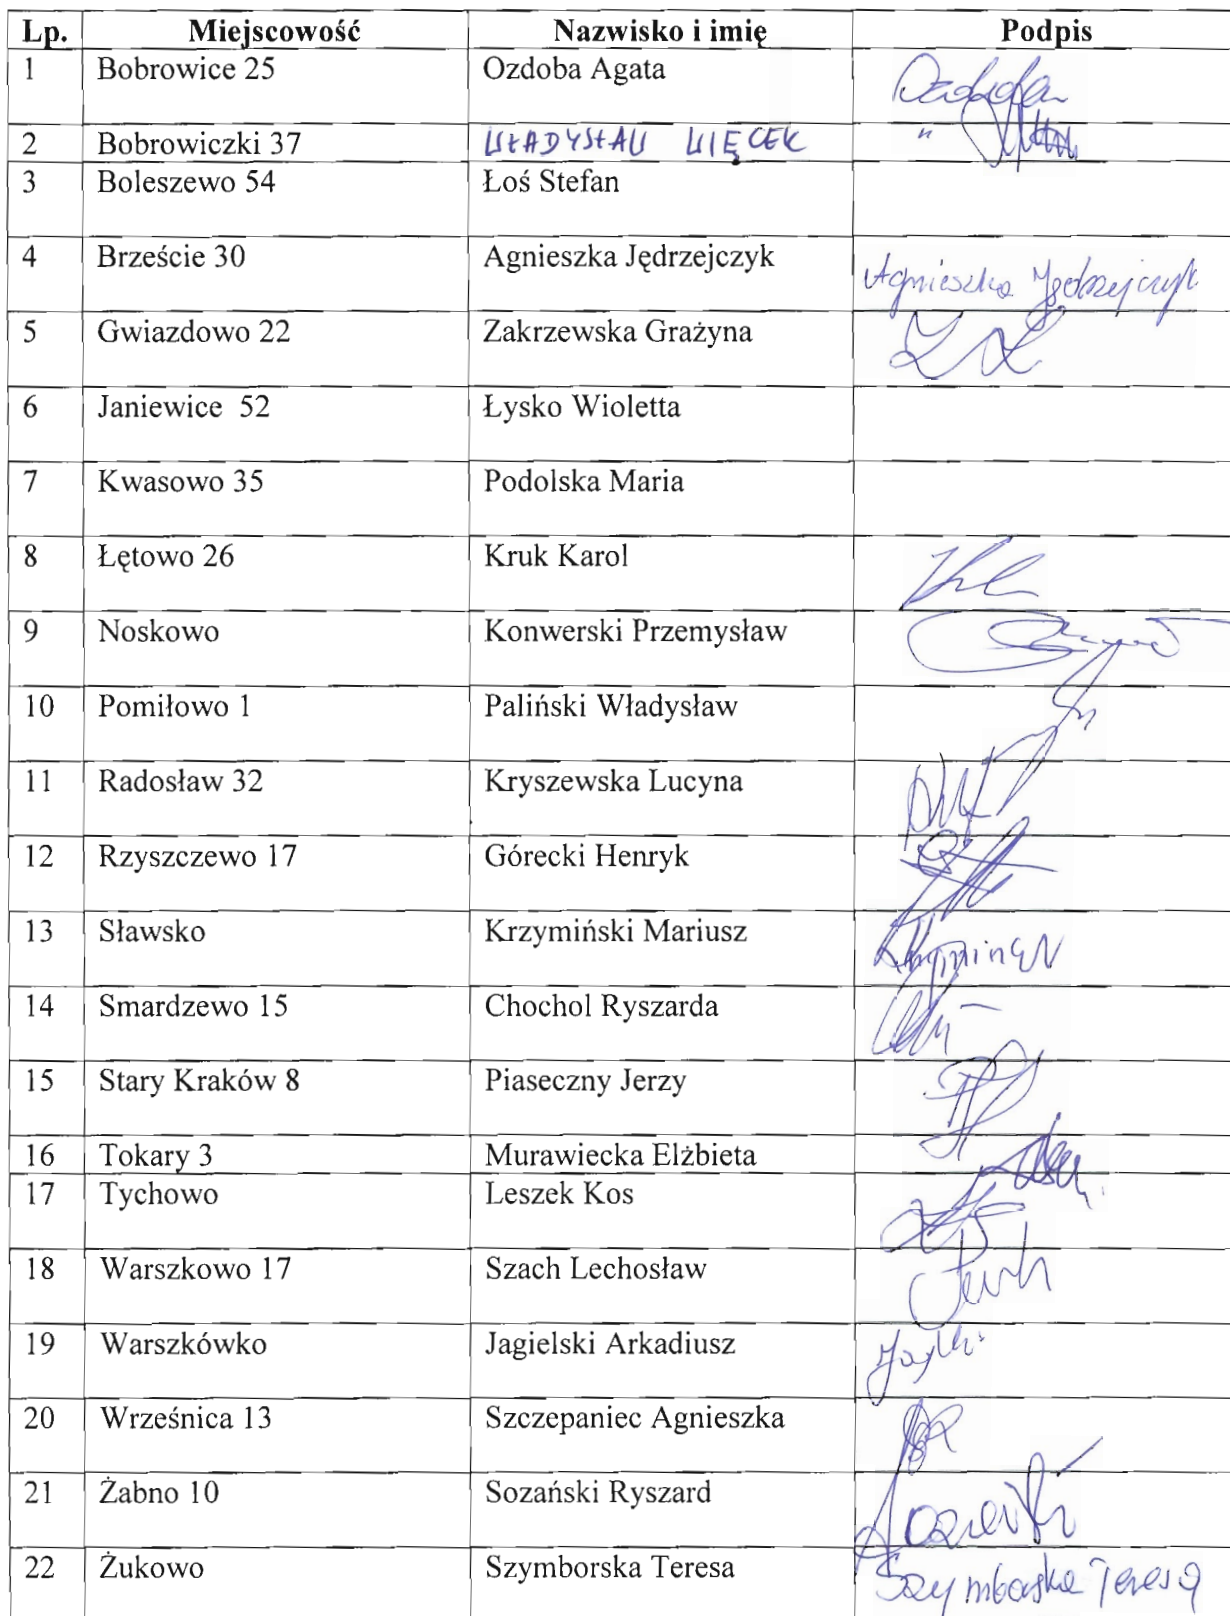 Lp. Miejscowość Nazwisko i imię Podpis
1 Bobrowice 25 Ozdoba Agata Ozdoba
2 Bobrowiczki 37 WŁADYSŁAW WIĘCEK "
3 Boleszewo 54 Łoś Stefan
4 Brzeście 30 Agnieszka Jędrzejczyk Agnieszka Jędrzejczyk
5 Gwiazdowo 22 Zakrzewska Grażyna
6 Janiewice 52 Łysko Wioletta
7 Kwasowo 35 Podolska Maria
8 Łętowo 26 Kruk Karol
9 Noskowo Konwerski Przemysław
10 Pomiłowo 1 Paliński Władysław
11 Radosław 32 Kryszewska Lucyna
12 Rzyszczewo 17 Górecki Henryk
13 Sławsko Krzymiński Mariusz
14 Smardzewo 15 Chochol Ryszarda
15 Stary Kraków 8 Piaseczny Jerzy
16 Tokary 3 Murawiecka Elżbieta
17 Tychowo Leszek Kos
18 Warszkowo 17 Szach Lechosław
19 Warszkówko Jagielski Arkadiusz
20 Wrześnica 13 Szczepaniec Agnieszka
21 Żabno 10 Sozański Ryszard
22 Żukowo Szymborska Teresa Szymborska Teresa